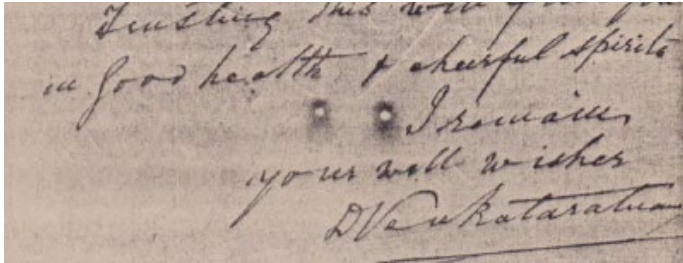 Trusting this will find you
in good health & cheerful spirits
I remain,
your well wisher
DVenkataratnam